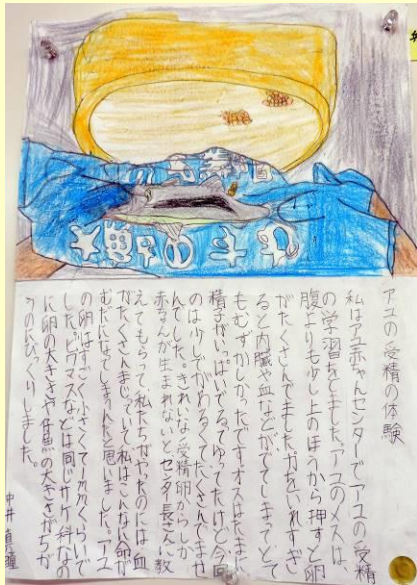 アユの受精の体験
私はアユ赤ちゃんセンターでアユの受精
の学習をしました。アユのメスは、
腹よりも少し上のほうから押すと卵
がたくさんでました。力をいれすぎ
ると内臓や血などがでてしまってとて
もむずかしかったです。オスはたまに
精子がいっぱいでるってゆってたけど、今回
のは少しぐあいわるくてたくさんでませ
んでした。きれいな受精卵からしか
赤ちゃんが生まれないと、センター長さんに教
えてもらって、私たちがやったのには、血
がたくさんまじっていて、私はこんなに命が
むだになってしまうんだと思いました。アユ
の卵はすごく小さくて1ミリくらいで
した。ビワマスなどは同じサケ科なの
に卵の大きさや魚の大きさがちが
うのにびっくりしました。
中井